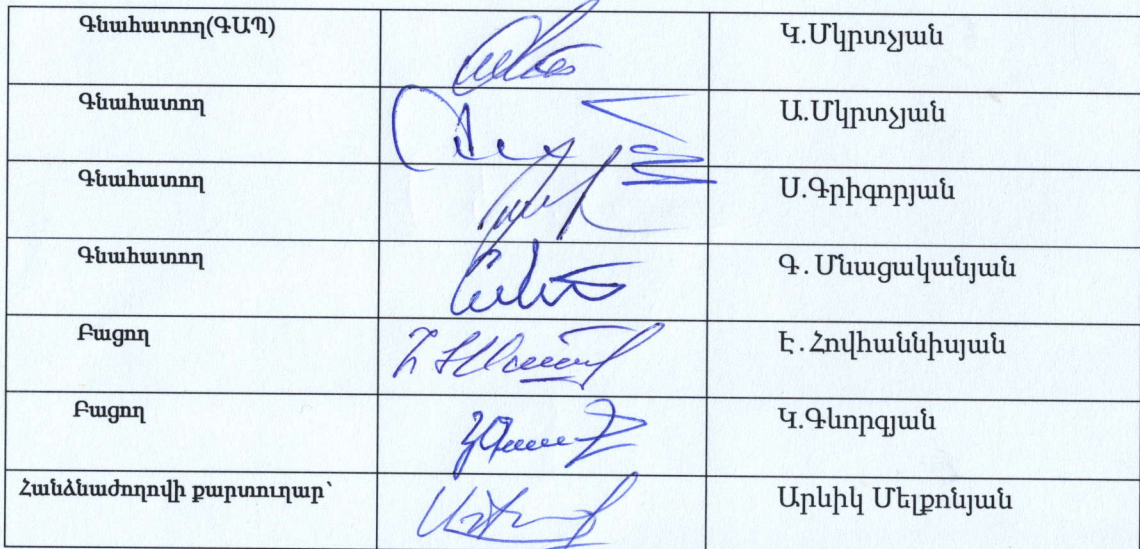 Գնահատող(ԳԱՊ) Կ.Մկրտչյան
Գնահատող Ա.Մկրտչյան
Գնահատող Ս.Գրիգորյան
Գնահատող Գ. Մնացականյան
Բացող Է. Հովհաննիսյան
Բացող Կ.Գևորգյան
Հանձնաժողովի քարտուղար՝ Արևիկ Մելքոնյան